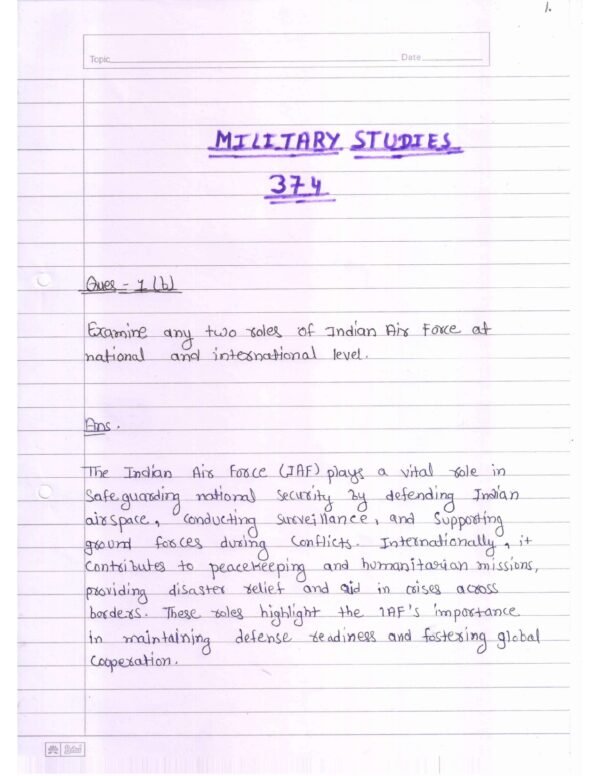 1.
Topic
Date
MILITARY STUDIES
374
Ques - 1 (b)
Examine any two roles of Indian Air Force at
national and international level.
Ans.
The Indian Air Force (IAF) plays a vital role in
Safeguarding national security by defending Indian
airspace, conducting surveillance, and supporting
ground forces during conflicts. Internationally, it
contributes to peacekeeping and humanitarian missions,
providing disaster relief and aid in crises across
borders. These roles highlight the IAF's importance
in maintaining defense readiness and fostering global
cooperation.